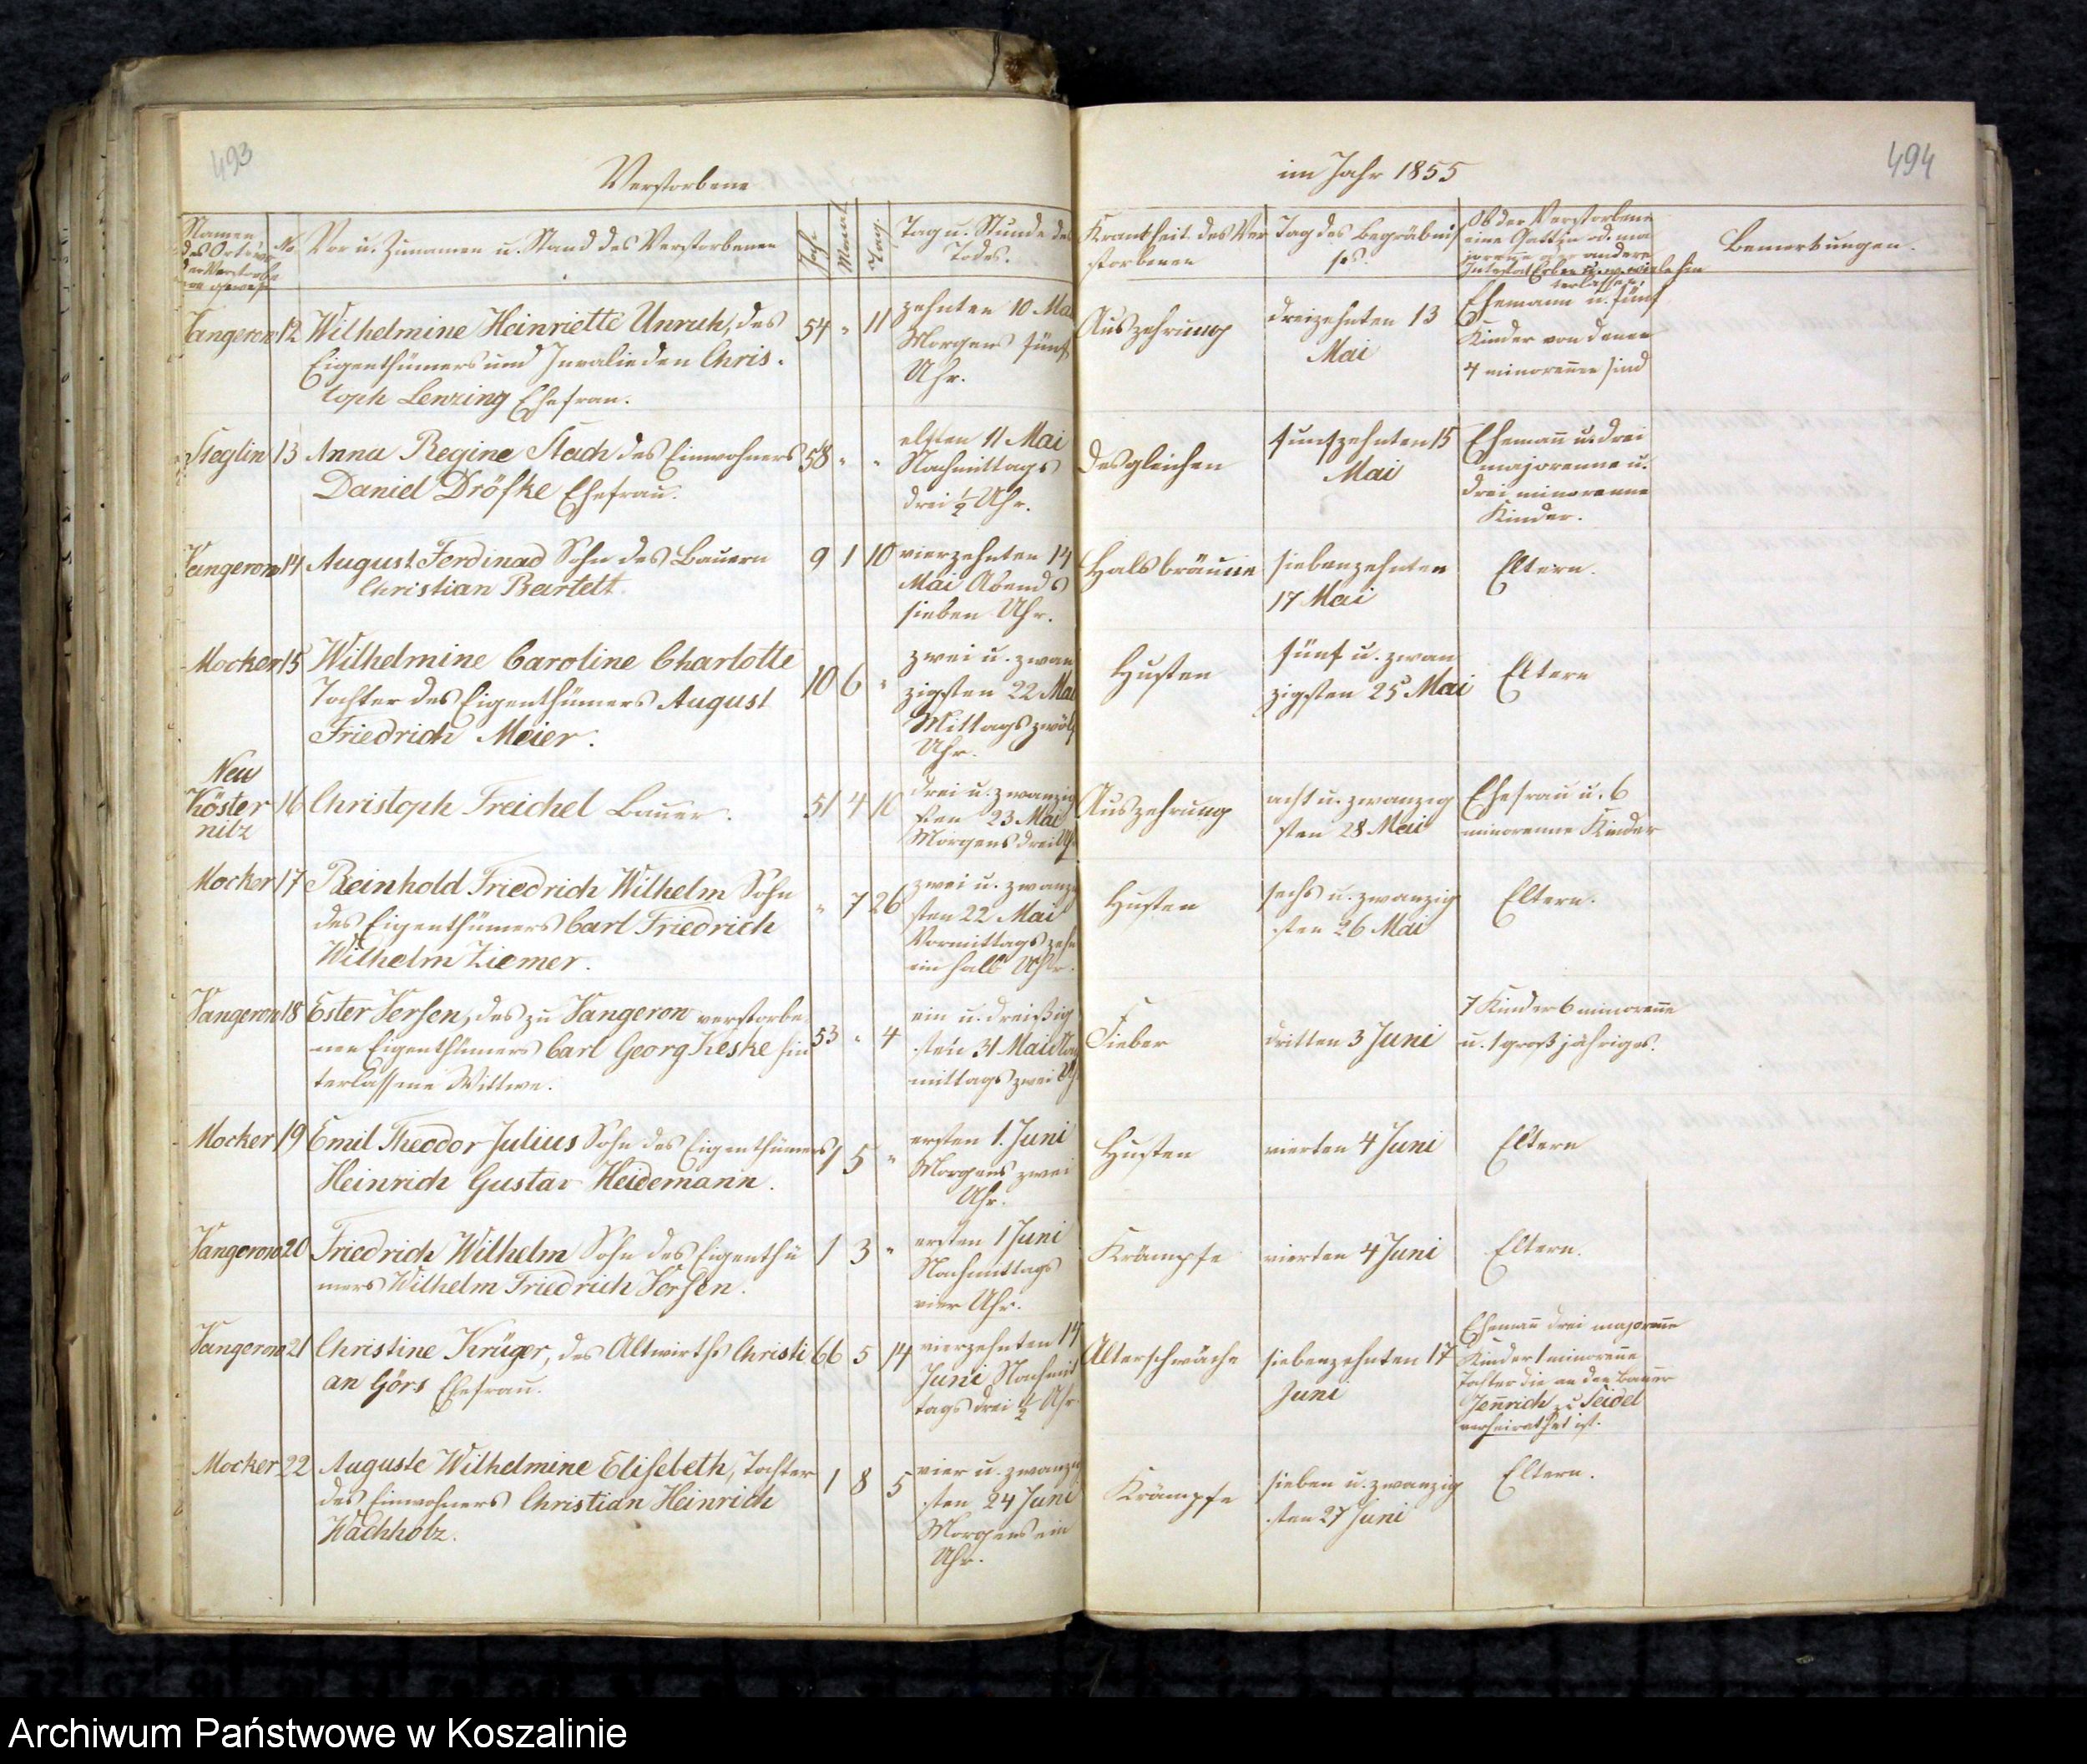 493
Verstorbene
im Jahr 1855
494
Namen
des Orts wo
der Verstorbe
ne gewesen
No
Vor u. Zunamen u. Stand des Verstorbenen
Jahr
Monat
Tag
Tag u. Stunde des
Todes.
Krankheit des Ver
storbenen
Tag des Begräbnis
ses.
Ob der Verstorbene
eine Gattin od. ma
jorenne oder andere
Intestat Erben u. wieviele hin
terlassen.
Bemerkungen.
Vangerow 12 Wilhelmine Heinriette Unruh, des
Eigenthümers und Invalieden Chris-
toph Lenzing Ehefrau.
54 " 11
zehnten 10 Mai
Morgens fünf
Uhr.
Auszehrung
dreizehnten 13
Mai
Ehemann u. fünf
Kinder von denen
4 minorenne sind
Steglin 13 Anna Regine Stach des Einwohners
Daniel Dröske Ehefrau.
58 " "
elften 11 Mai
Nachmittags
drei ½ Uhr.
desgleichen
funfzehnten 15
Mai
Ehemann u. drei
majorenne u.
drei minorenne
Kinder.
Vangerow 14 August Ferdinad Sohn des Bauern
Christian Bartelt.
9 1 10
vierzehnten 14
Mai Abends
sieben Uhr.
Halsbräune
siebenzehnten
17 Mai
Eltern.
Mocker 15 Wilhelmine Caroline Charlotte
Tochter des Eigenthümers August
Friedrich Meier.
10 6 "
zwei u. zwan
zigsten 22 Mai
Mittags zwölf
Uhr.
Husten
fünf u. zwan
zigsten 25 Mai
Eltern
Neu
Köster
nitz
16 Christoph Treichel Bauer.
51 4 10
drei u. zwanzig
sten 23 Mai
Morgens drei Uhr
Auszehrung
acht u. zwanzig
sten 28 Mai
Ehefrau u. 6
minorenne Kinder
Mocker 17 Reinhold Friedrich Wilhelm Sohn
des Eigenthümers Carl Friedrich
Wilhelm Ziemer.
" 7 26
zwei u. zwanzig
sten 22 Mai
Vormittags zehn
ein halb Uhr.
Husten
sechs u. zwanzig
sten 26 Mai
Eltern.
Vangerow 18 Ester Versen, des zu Vangerow verstorbe
nen Eigenthümers Carl Georg Zieske hin
terlassene Wittwe.
53 " 4
ein u. dreißig
sten 31 Mai Nach
mittags zwei Uhr
Fieber
dritten 3 Juni
7 Kinder 6 minorenne
u. 1 großjähriges.
Mocker 19 Emil Theodor Julius Sohn des Eigenthümers
Heinrich Gustav Heidemann.
1 5 "
ersten 1. Juni
Morgens zwei
Uhr.
Husten
vierten 4 Juni
Eltern
Vangerow 20 Friedrich Wilhelm Sohn des Eigenthü
mers Wilhelm Friedrich Versen.
1 3 "
ersten 1 Juni
Nachmittags
vier Uhr.
Krämpfe
vierten 4 Juni
Eltern.
Vangerow 21 Christine Krüger, des Altwirths Christi
an Görs Ehefrau.
66 5 14
vierzehnten 14
Juni Nachmit
tags drei ½ Uhr
Alterschwäche
siebenzehnten 17
Juni
Ehemann drei majorenne
Kinder 1 minorenne
Tochter die an den Bauer
Jennrich zu Seidel
verheirathet ist.
Mocker 22 Auguste Wilhelmine Elisebeth, Tochter
des Einwohners Christian Heinrich
Wachholz.
1 8 5
vier u. zwanzig
sten 24 Juni
Morgens ein
Uhr.
Krämpfe
sieben u. zwanzig
sten 27 Juni
Eltern.
Archiwum Państwowe w Koszalinie